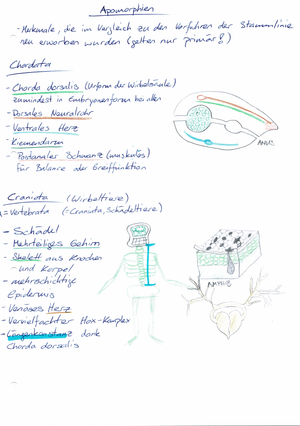 Apomorphien
- Merkmale, die im Vergleich zu den Vorfahren der Stammlinie
neu erworben wurden (gelten nur primär!)
Chordata
- Chorda dorsalis (Urform der Wirbelsäule)
zumindest in Embryonenform bei allen
- Dorsales Neuralrohr
- Ventrales Herz
- Kiemendarm
- Postanaler Schwanz (muskulös)
Für Balance oder Greiffunktion
Craniota (Wirbeltiere)
= Vertebrata (= Craniata, Schädeltiere)
- Schädel
- Mehrteiliges Gehirn
- Skelett aus Knochen
und Knorpel
- mehrschichtige
Epidermis
- Venöses Herz
- Vervielfachter Hox-Komplex
- Längenkonstanz dank
Chorda dorsalis